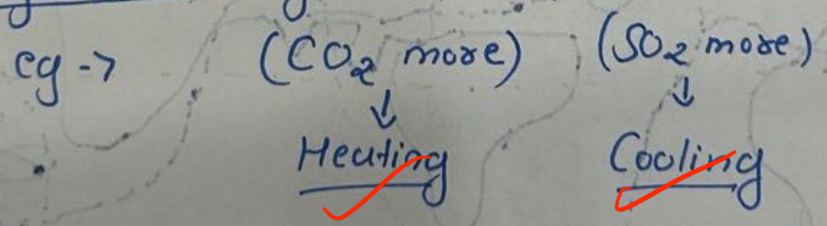 eg -> (CO₂ more) (SO₂ more)
↓ ↓
Heating Cooling